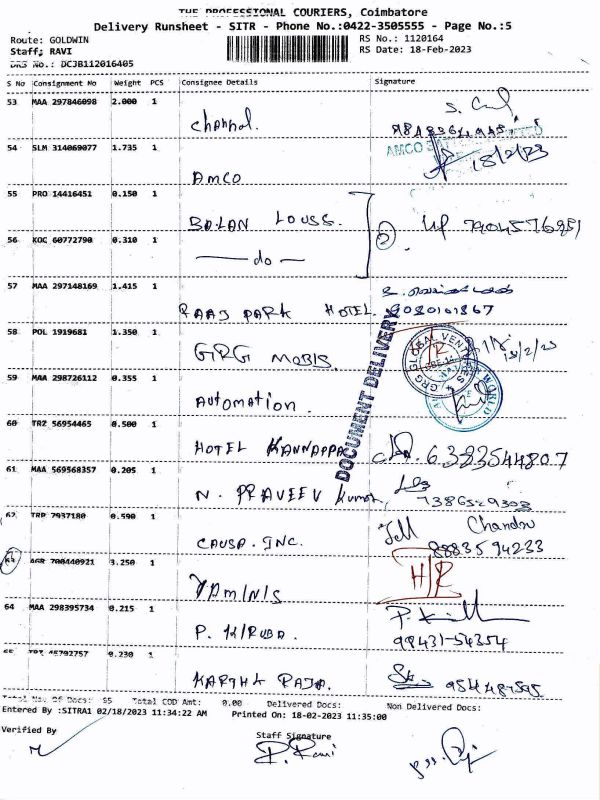 THE PROFESSIONAL COURIERS, Coimbatore
Delivery Runsheet - SITR - Phone No.:0422-3505555 - Page No.:5
Route: GOLDWIN
Staff: RAVI
DRS No.: DCJB112016405
RS No.: 1120164
RS Date: 18-Feb-2023
S No Consignment No Weight PCS Consignee Details Signature
53 MAA 297846098 2.000 1
channel.
54 SLM 314069077 1.735 1
AMCO 18/2/23
55 PRO 14416451 0.150 1
BALAN LOUSS.
56 KOC 60772790 0.310 1
— do —
57 MAA 297148169 1.415 1
RAAJ PARK HOTEL. 8080101867
58 POL 1919681 1.350 1
GRG MOBIS.
DOCUMENT DELIVERY
GRG GLOBAL VENTURES
59 MAA 298726112 0.355 1
Automation.
60 TRZ 56954465 0.500 1
HOTEL KANNAPPA 6383544807
61 MAA 569568357 0.205 1
N. PRAVEEV Kumar 7386529303
62 TRP 7937180 0.590 1
CAUSA. INC. Chandru
8883594233
63 AGR 700440921 3.250 1
YAMINIS H/R
64 MAA 298395734 0.215 1
P. KIRUBA. 99431-54354
65 45702757 0.230 1
KARTHI RAJA.
Total No. Of Docs: 65 Total COD Amt: 0.00 Delivered Docs: Non Delivered Docs:
Entered By :SITRA1 02/18/2023 11:34:22 AM Printed On: 18-02-2023 11:35:00
Verified By Staff Signature
P. Ravi